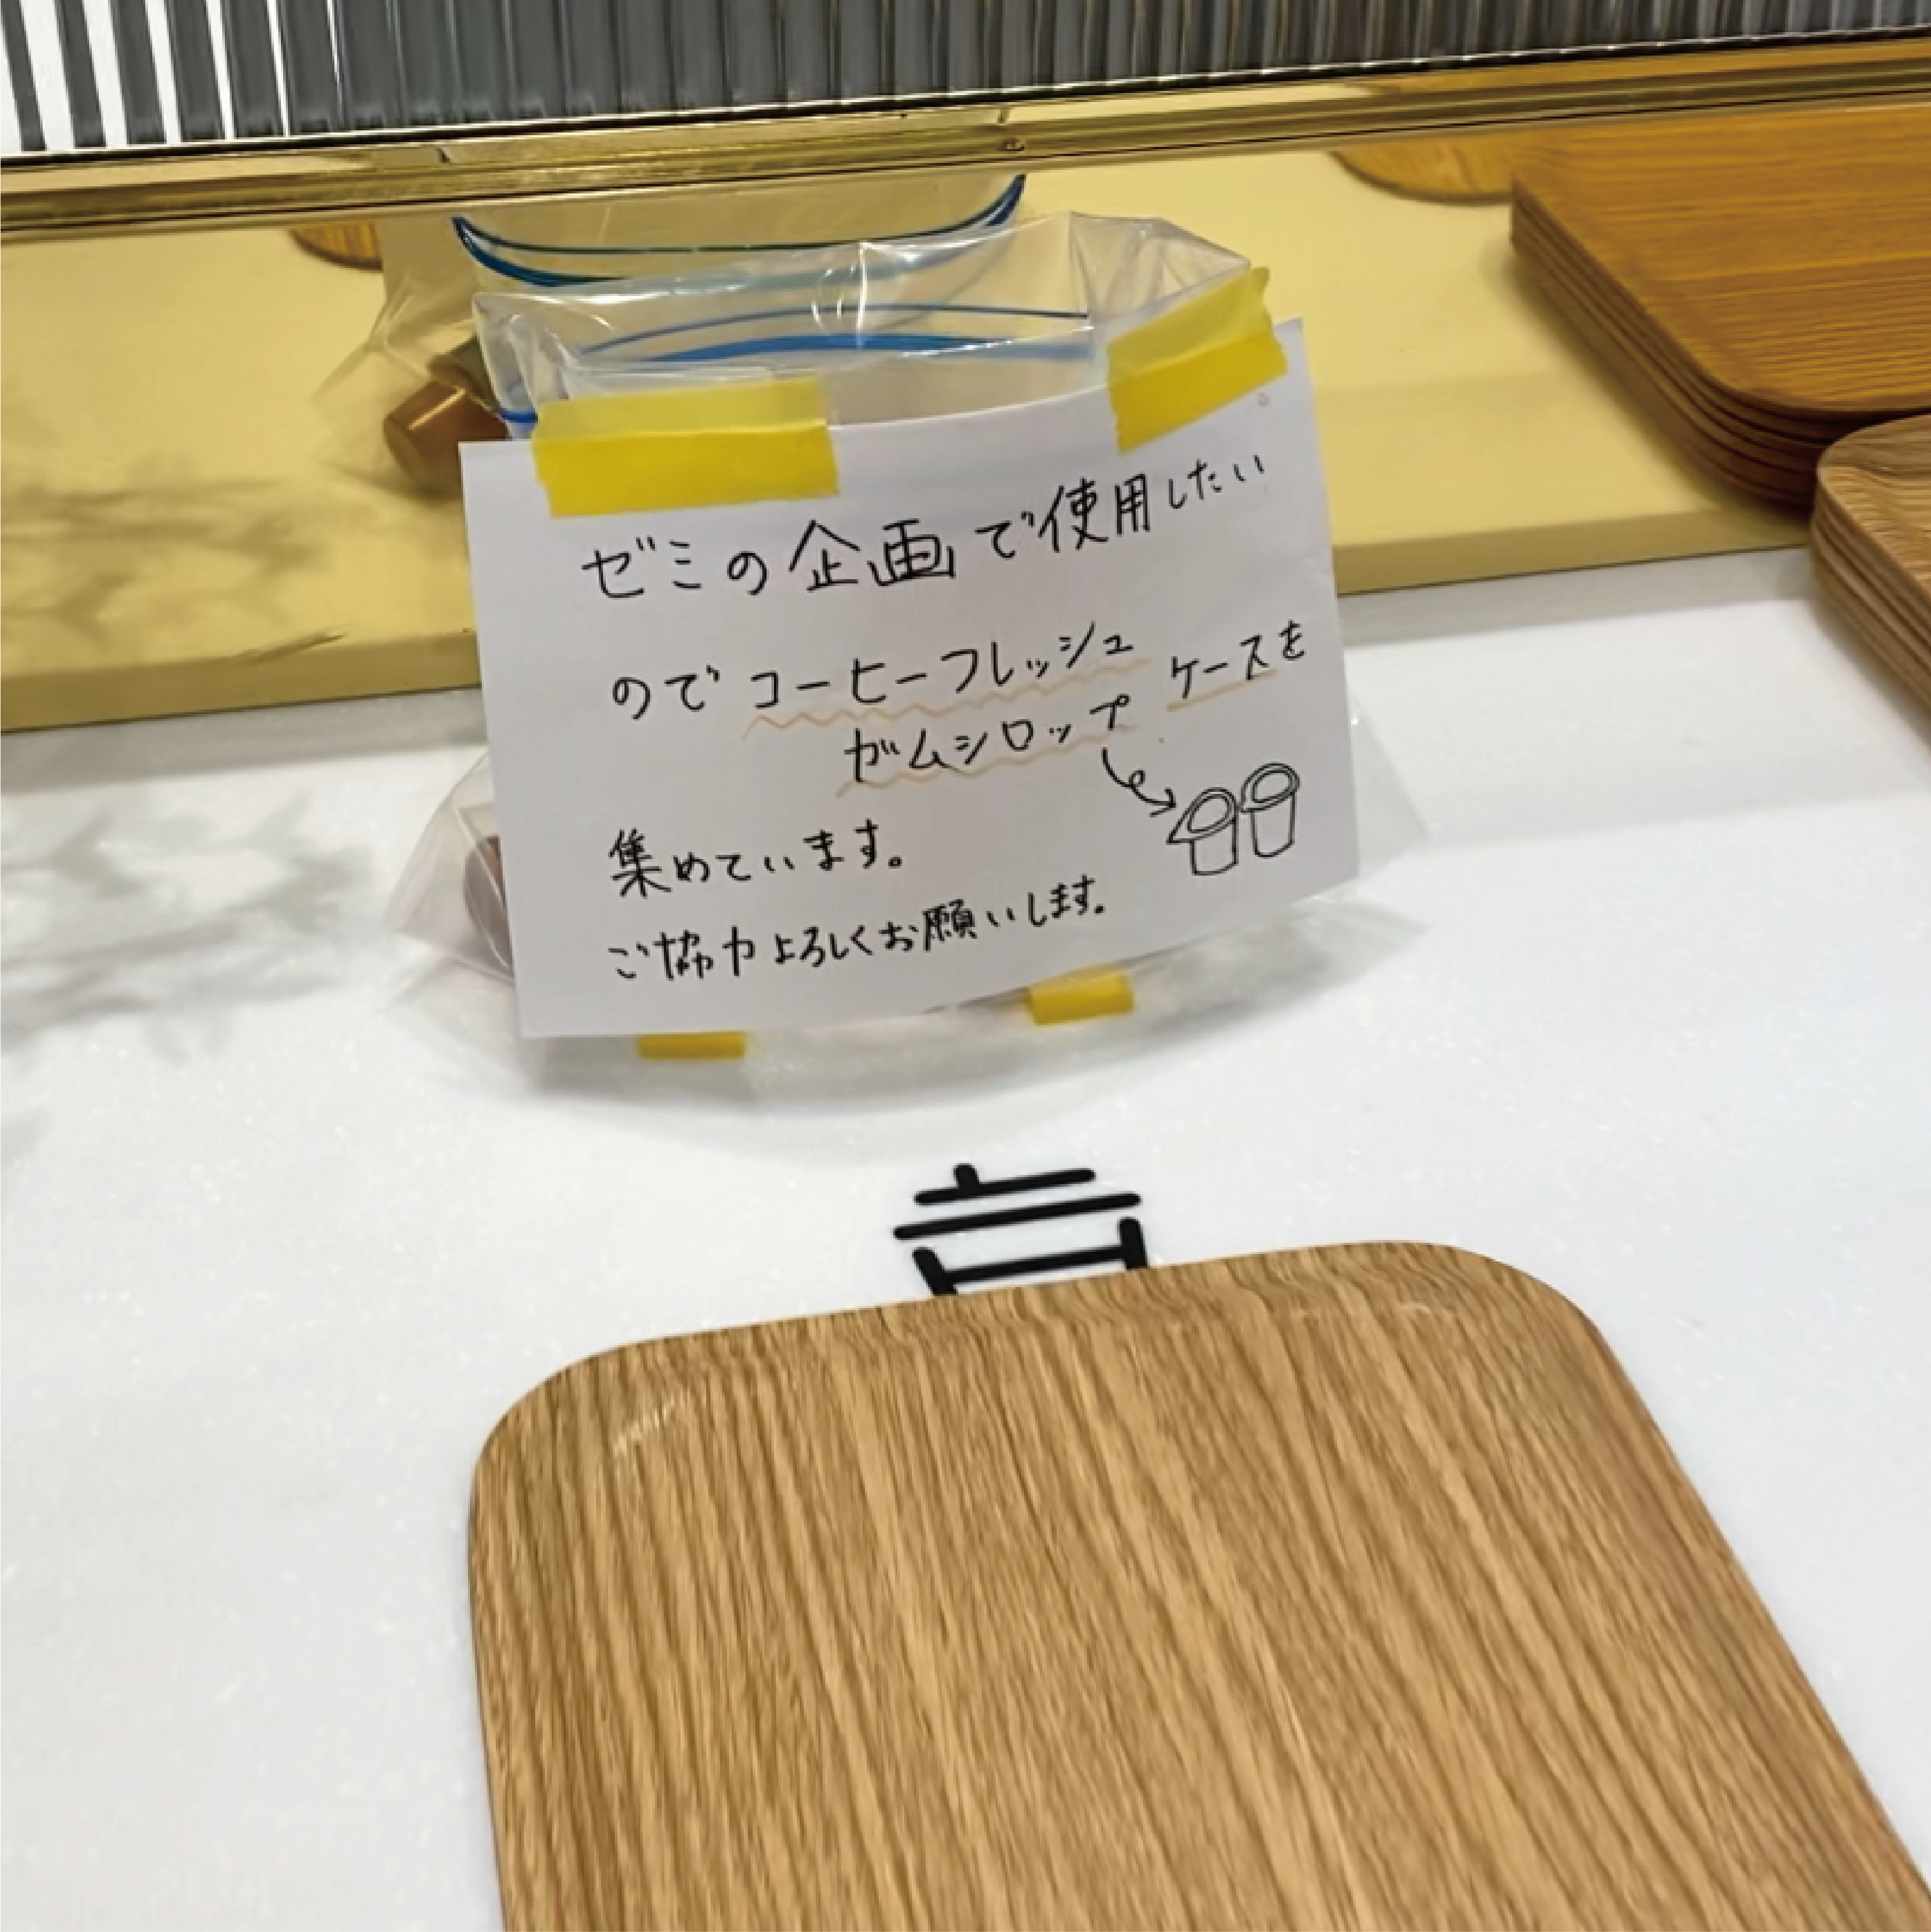 ゼミの企画で使用したい
のでコーヒーフレッシュ ケースを
ガムシロップ
集めています。
ご協力よろしくお願いします。